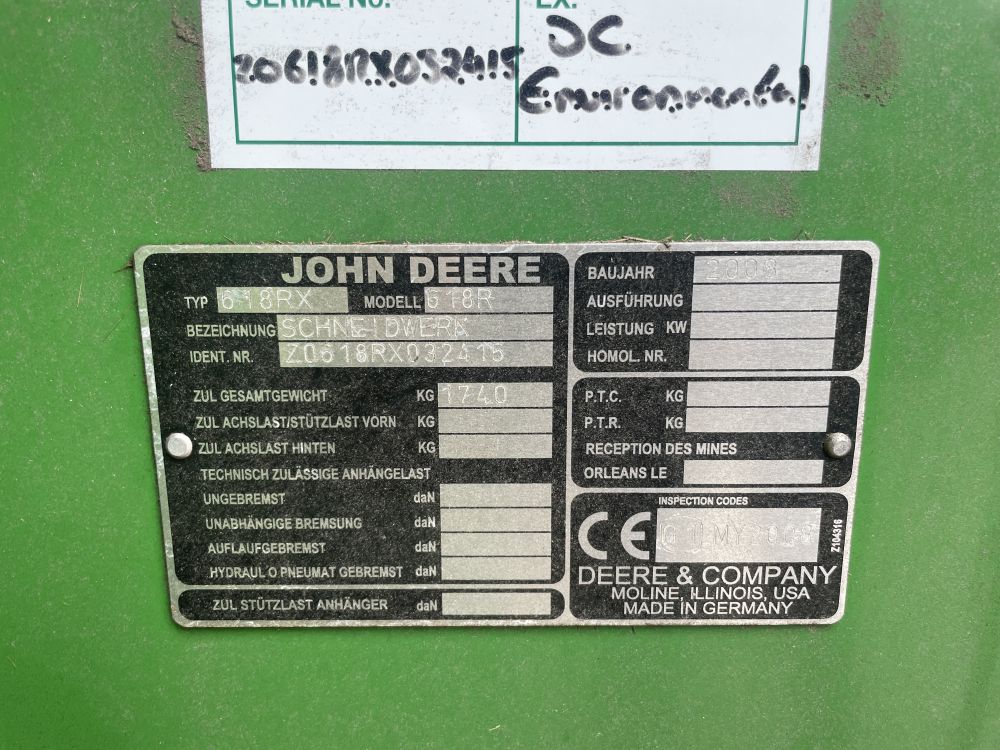 SERIAL No.
EX.
Z0618RX032415
JC
Environmental
JOHN DEERE
TYP 618RX MODELL 618R
BEZEICHNUNG SCHNEIDWERK
IDENT. NR. Z0618RX032415
ZUL GESAMTGEWICHT KG 1740
ZUL ACHSLAST/STÜTZLAST VORN KG
ZUL ACHSLAST HINTEN KG
TECHNISCH ZULÄSSIGE ANHÄNGELAST
UNGEBREMST daN
UNABHÄNGIGE BREMSUNG daN
AUFLAUFGEBREMST daN
HYDRAUL O PNEUMAT GEBREMST daN
ZUL STÜTZLAST ANHÄNGER daN
BAUJAHR 2008
AUSFÜHRUNG
LEISTUNG KW
HOMOL. NR.
P.T.C. KG
P.T.R. KG
RECEPTION DES MINES
ORLEANS LE
INSPECTION CODES
CE MY2008
Z104316
DEERE & COMPANY
MOLINE, ILLINOIS, USA
MADE IN GERMANY